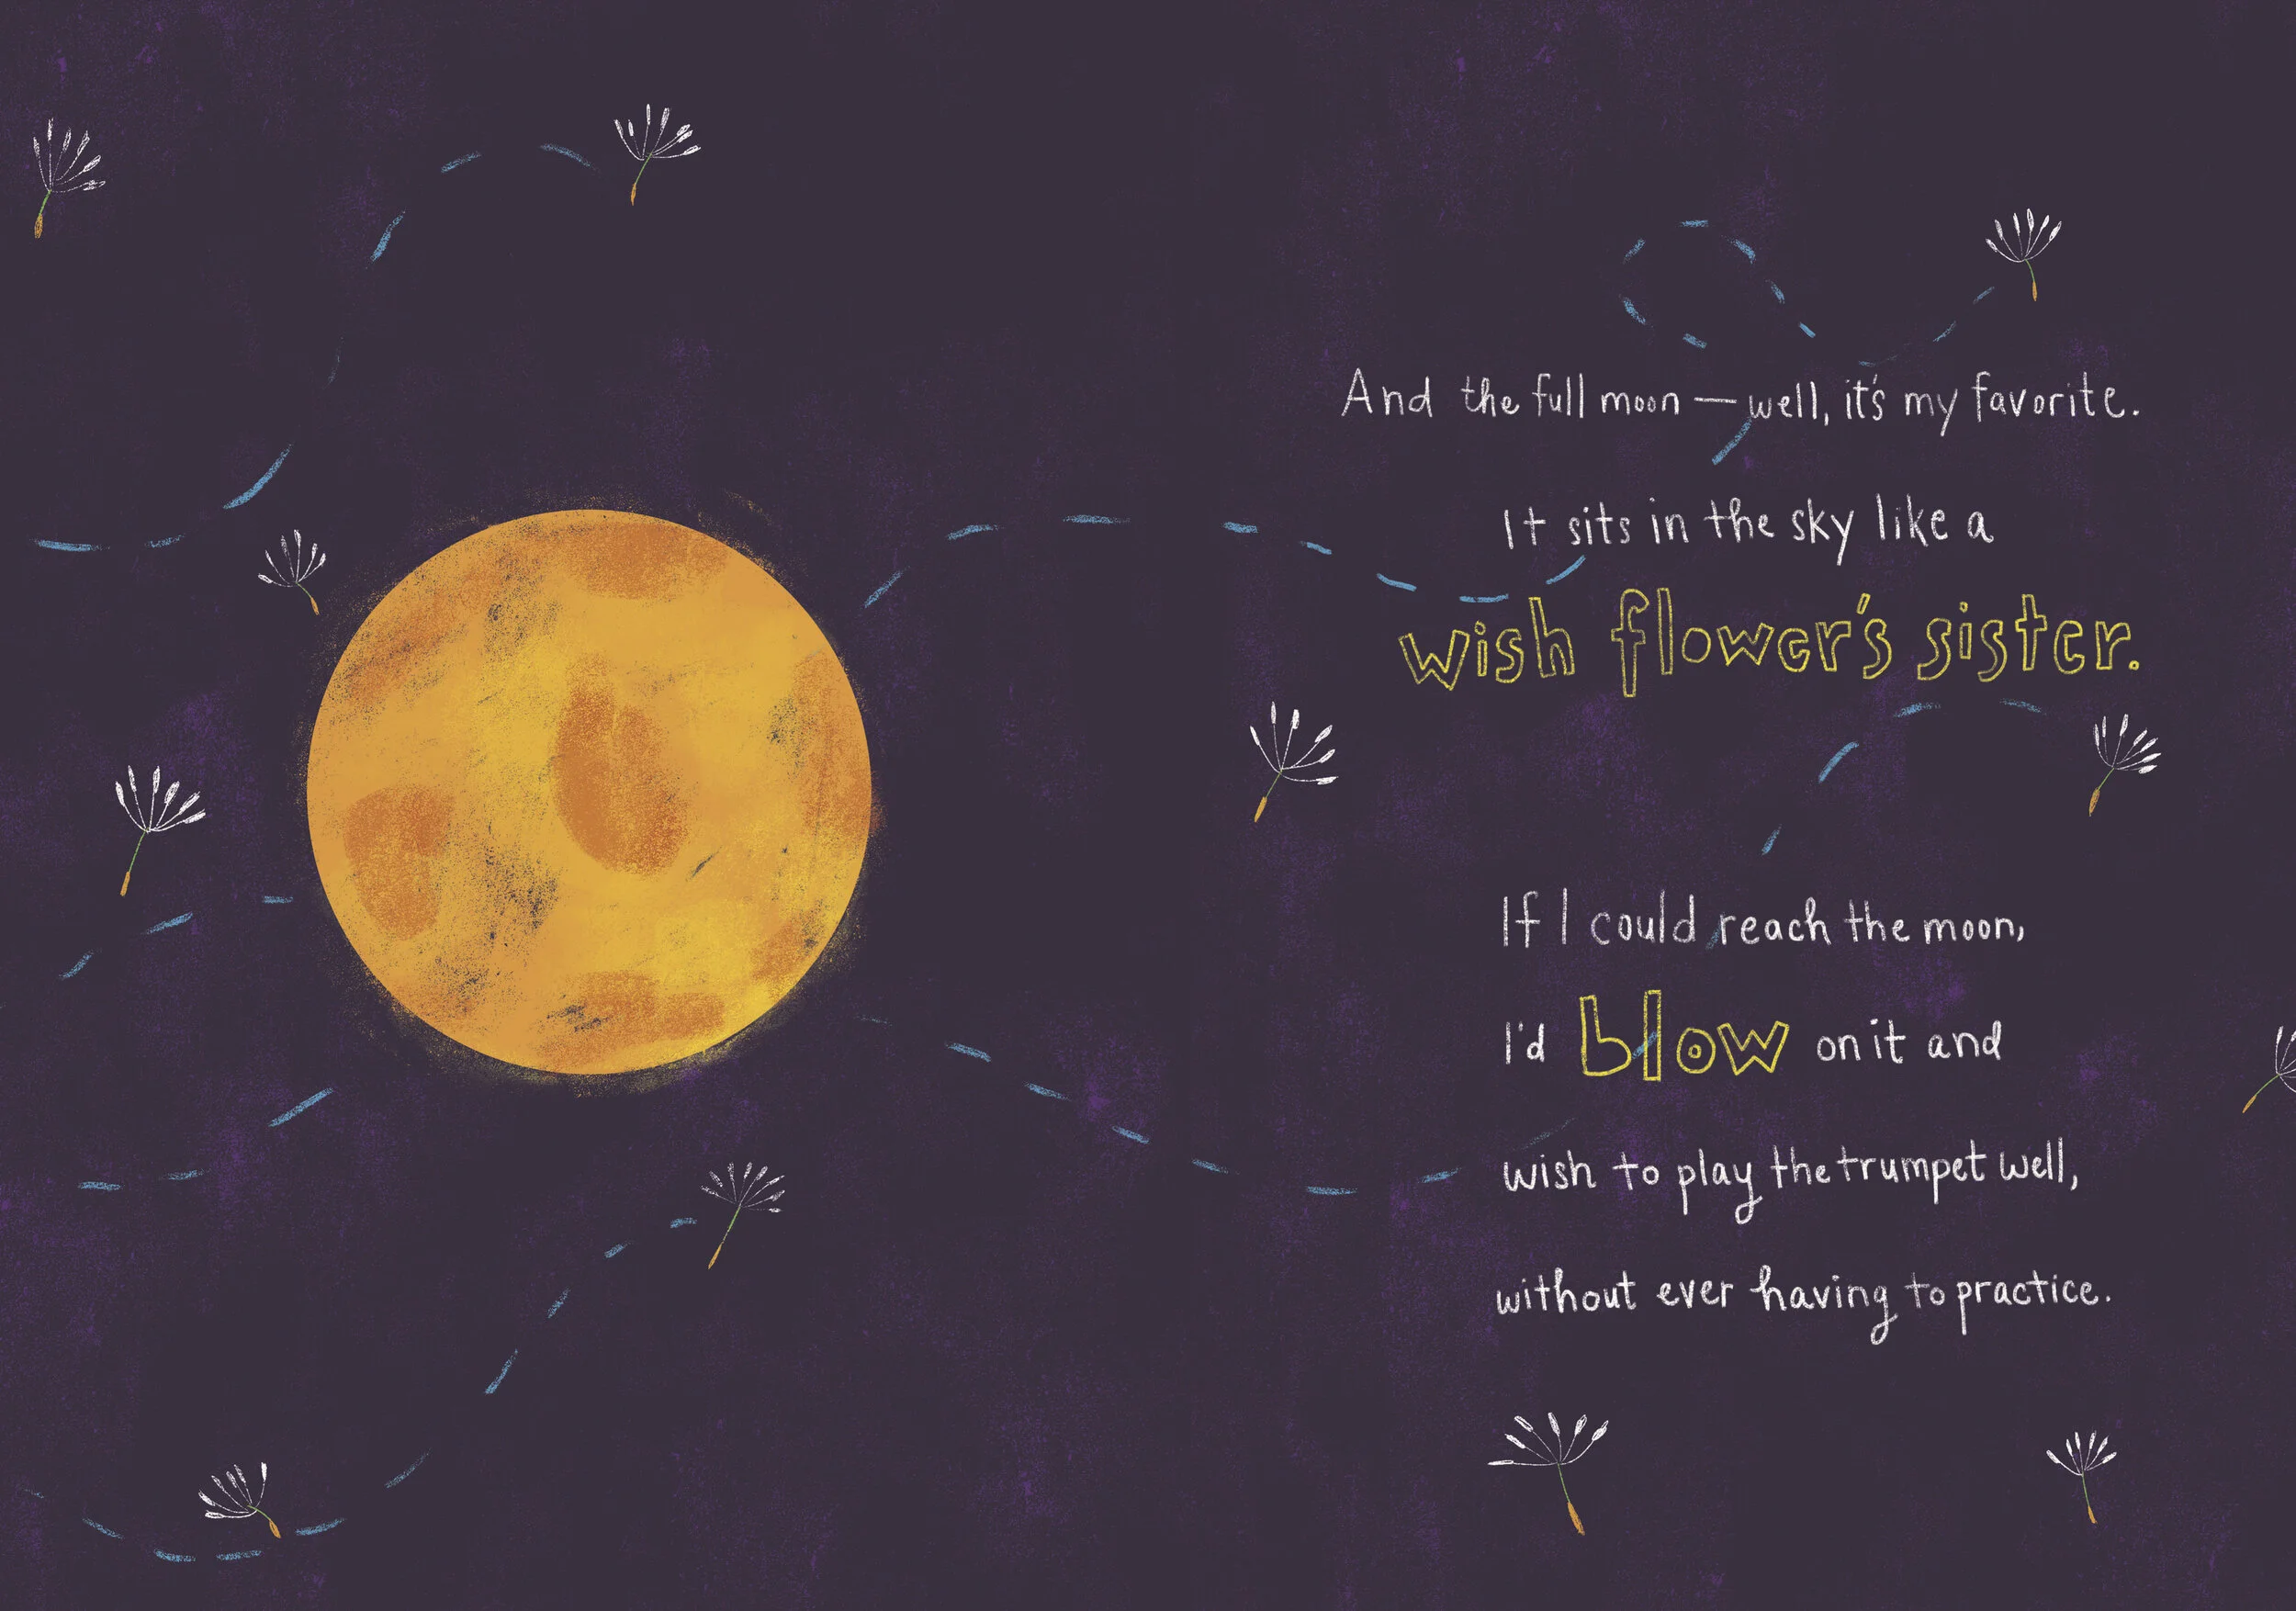 And the full moon — well, it's my favorite.
It sits in the sky like a
wish flower's sister.
If I could reach the moon,
I'd blow on it and
wish to play the trumpet well,
without ever having to practice.